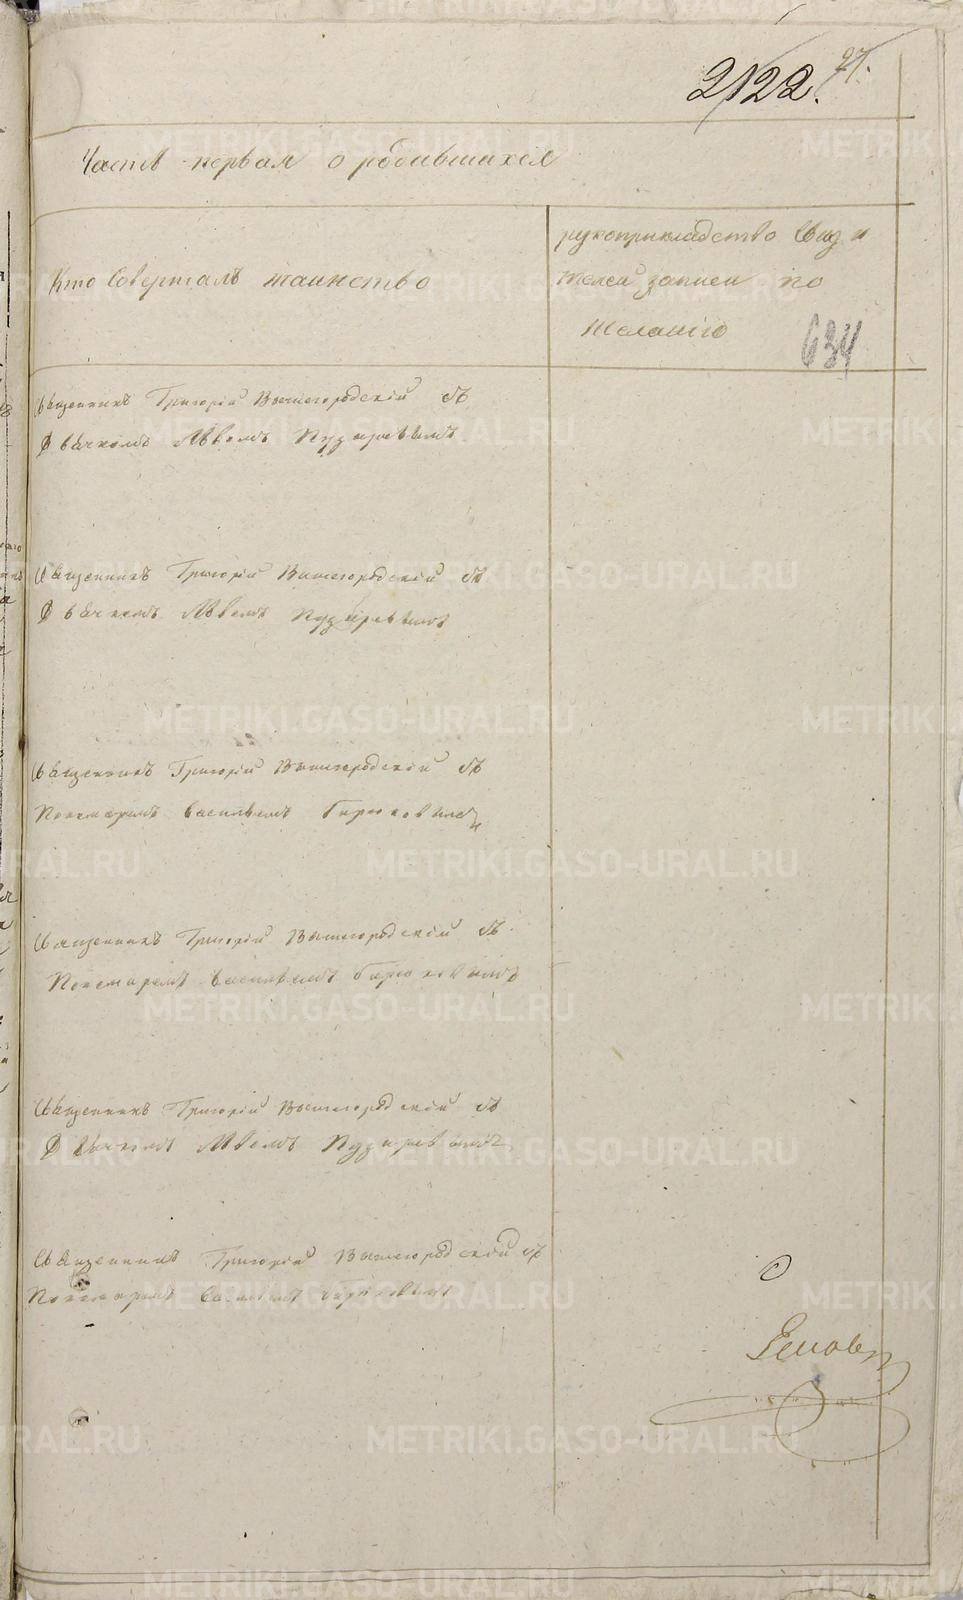 27.
2122.
Часть первая о родившихся
Кто Совершалъ таинство
рукоприкладство Свид и
телей записи по
желанію
634
Священникъ Григорій Вышегородскій съ
Дьячкомъ Львомъ Пузыревымъ
Священникъ Григорій Вышегородскій съ
Дьячкомъ Львомъ Пузыревымъ
Священникъ Григорій Вышегородскій съ
Пономаремъ Васильемъ Бирюковымъ
Священникъ Григорій Вышегородскій съ
Пономаремъ Васильемъ Бирюковымъ
Священникъ Григорій Вышегородскій съ
Дьячкомъ Львомъ Пузыревымъ
Священникъ Григорій Вышегородскій съ
Пономаремъ Васильемъ Бирюковымъ
METRIKI.GASO-URAL.RU